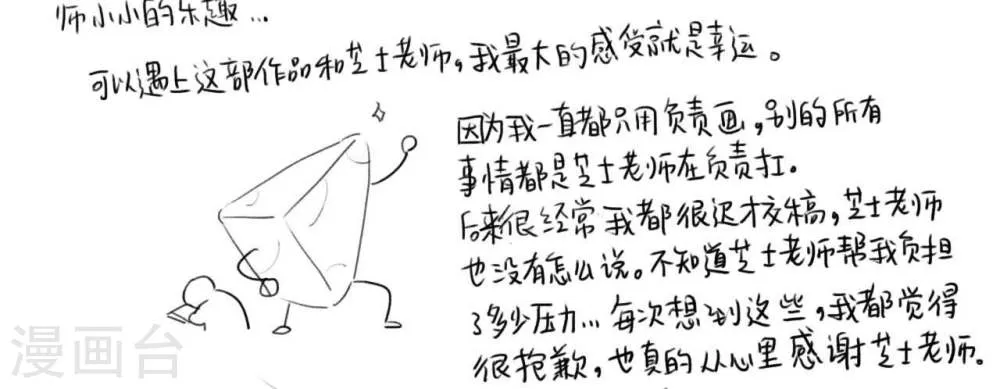 师小小的乐趣…
可以遇上这部作品和芝士老师，我最大的感受就是幸运。
因为我一直都只用负责画，别的所有
事情都是芝士老师在负责扛。
后来很经常我都很迟才交稿，芝士老师
也没有怎么说。不知道芝士老师帮我负担
了多少压力…每次想到这些，我都觉得
很抱歉，也真的从心里感谢芝士老师。
漫画台